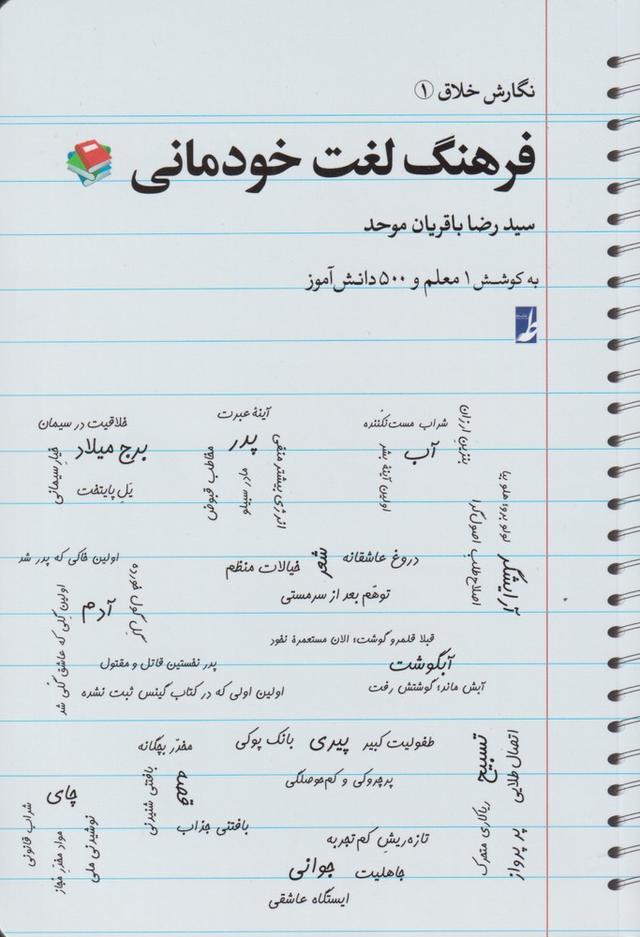 نگارش خلاق ①
فرهنگ لغت خودمانی
سید رضا باقریان موحد
به کوشش ۱ معلم و ۵۰۰ دانش‌آموز
طه
بنزین ارزان
شراب مست‌نکننده
آب
اولین آینهٔ بشر
آینهٔ عبرت
پدر
مخاطب قبوض
مادر سبیلو
انرژی بیشتر منفی
خلاقیت در سیمان
برج میلاد
خیار سیمانی
یَلِ پایتخت
لولو برو؛ هلو بیا
آرایشگر
اصلاح‌طلب اصول‌گرا
دروغ عاشقانه
شعر
خیالات منظم
توهّم بعد از سرمستی
اولین خاکی که پدر شد
آدم
گِل گول خورده
اولین گِلی که عاشق گُلی شد
پدر نخستین قاتل و مقتول
اولین اولی که در کتاب گینس ثبت نشده
قبلا قلمرو گوشت؛ الان مستعمرهٔ نخود
آبگوشت
آبش ماند؛ گوشتش رفت
اتصال طلایی
تسبیح
ریاکاری متحرک
پر پرواز
طفولیت کبیر
پیری
بانک پوکی
پرچروکی و کم‌حوصلگی
مخدّر بچگانه
قصه
بافتنی شنیدنی
بافتنی جذاب
چای
شراب قانونی
مواد مخدّر مُجاز
نوشیدنی ملی
تازه‌ریشِ کم‌تجربه
جوانی
جاهلیت
ایستگاه عاشقی